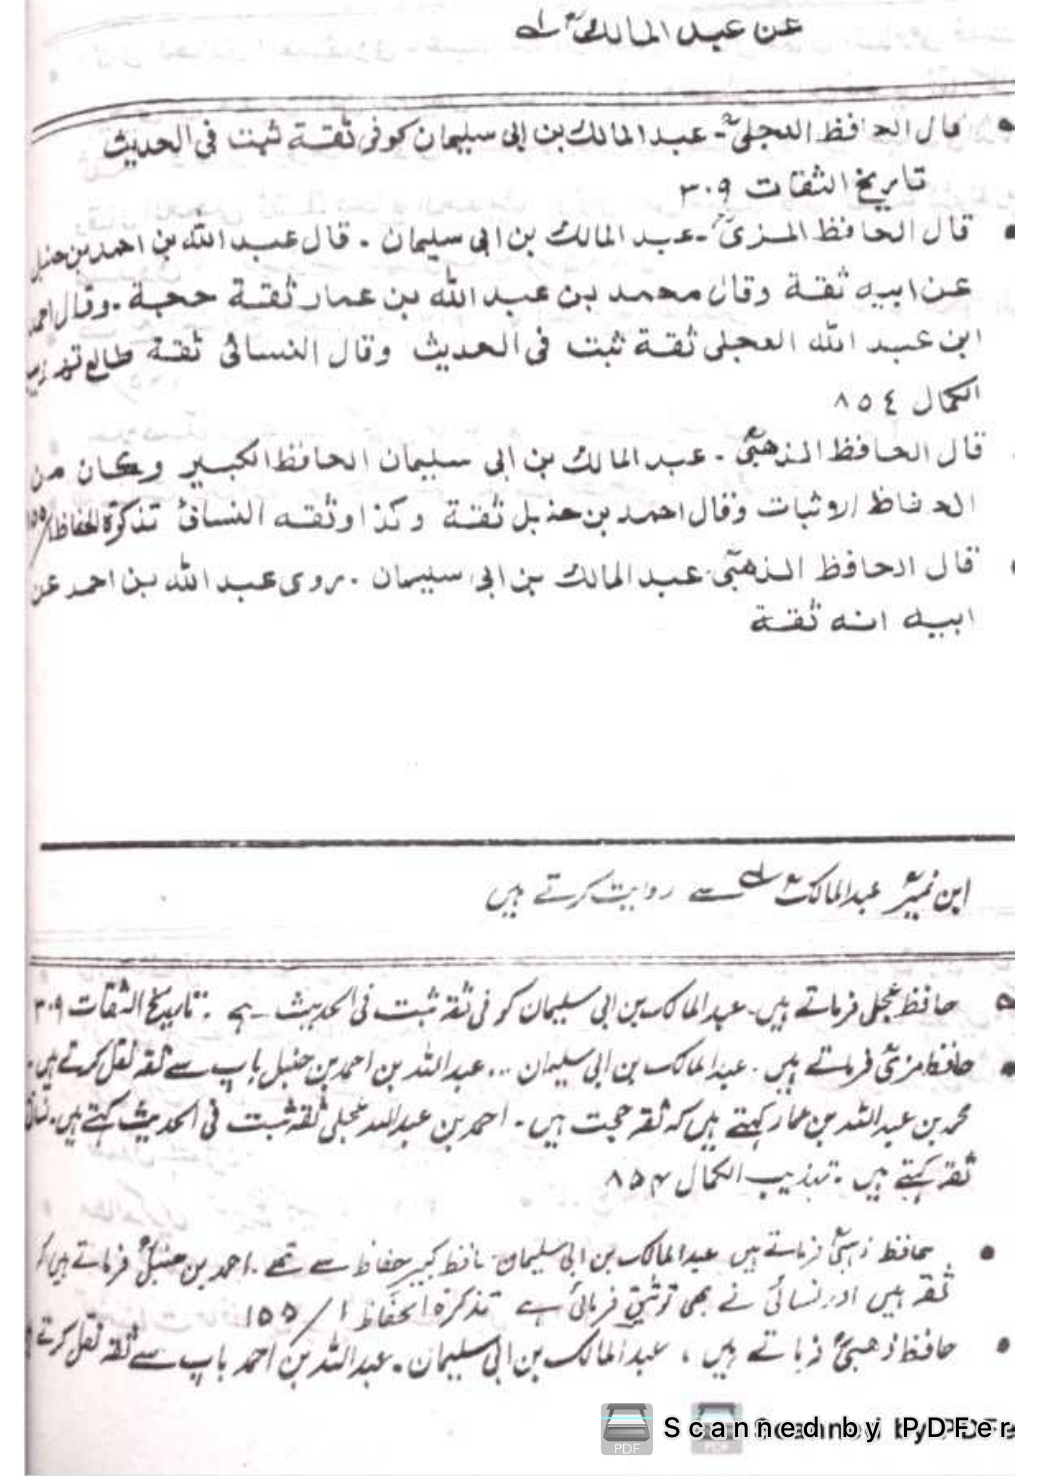 عن عبد المالكؒ ؎
• قال الحافظ العجلیؒ - عبد المالك بن ابی سلیمان کوفی ثقة ثبت فی الحدیث
تاریخ الثقات ٣٠٩
• قال الحافظ المزیؒ - عبد المالك بن ابی سلیمان . قال عبد الله بن احمد بن حنبل
عن ابیه ثقة وقال محمد بن عبد الله بن عمار ثقة حجة . وقال احمد
ابن عبد الله العجلی ثقة ثبت فی الحدیث وقال النسائی ثقة
الکمال ٨٥٤
قال الحافظ الذهبیؒ - عبد المالك بن ابی سلیمان الحافظ الکبیر وکان من
الحفاظ الاثبات وقال احمد بن حنبل ثقة وکذا وثقه النسائی تذکرة الحفاظ
• قال الحافظ الذهبیؒ عبد المالك بن ابی سلیمان . روی عبد الله بن احمد عن
ابیه انه ثقة
ابن نمیرؒ عبدالمالکؒ ؎ سے روایت کرتے ہیں
• حافظ عجلی فرماتے ہیں۔ عبدالمالک بن ابی سلیمان کوفی ثقہ ثبت فی الحدیث ہے ۔ تاریخ الثقات ۳۰۹
• حافظ مزیؒ فرماتے ہیں ۔ عبدالمالک بن ابی سلیمان ... عبداللہ بن احمد بن حنبل باپ سے ثقہ نقل کرتے ہیں۔
محمد بن عبداللہ بن عمار کہتے ہیں کہ ثقہ حجت ہیں ۔ احمد بن عبداللہ عجلی ثقہ ثبت فی الحدیث کہتے ہیں۔
ثقہ کہتے ہیں ۔ تہذیب الکمال ۸۵۴
• حافظ ذہبیؒ فرماتے ہیں عبدالمالک بن ابی سلیمان۔ حافظ کبیر حفاظ سے تھے ۔ احمد بن حنبلؒ فرماتے ہیں کہ
ثقہ ہیں اور نسائی نے بھی توثیق فرمائی ہے تذکرة الحفاظ ۱/۱۵۵
• حافظ ذھبیؒ فرماتے ہیں ، عبدالمالک بن ابی سلیمان۔ عبداللہ بن احمد باپ سے ثقہ نقل کرتے
PDF Scanned by PDFer
PDF Scanned by PDFe